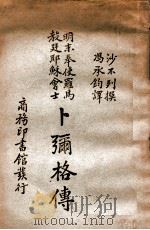 沙不列撰
馮承鈞譯
明末奉使羅馬
教廷耶穌會士
卜彌格傳
商務印書館發行